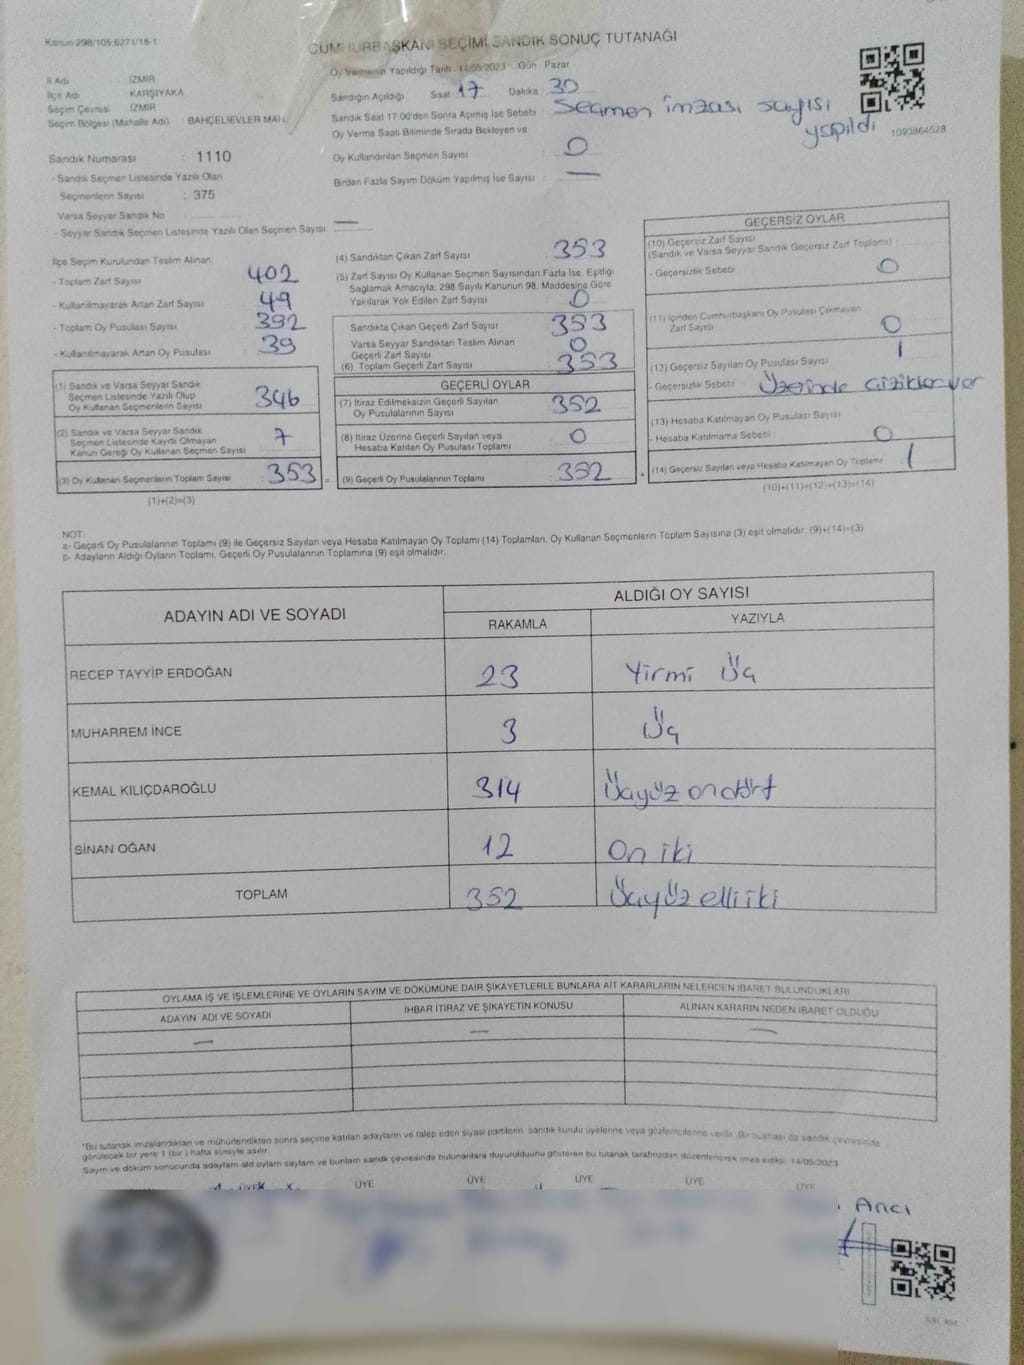 Kanun:298/105;6271/18-1
CUMHURBAŞKANI SEÇİMİ SANDIK SONUÇ TUTANAĞI
İl Adı : İZMİR
İlçe Adı : KARŞIYAKA
Seçim Çevresi : İZMİR
Seçim Bölgesi (Mahalle Adı) : BAHÇELİEVLER MAH.
Sandık Numarası : 1110
- Sandık Seçmen Listesinde Yazılı Olan
Seçmenlerin Sayısı : 375
Varsa Seyyar Sandık No
- Seyyar Sandık Seçmen Listesinde Yazılı Olan Seçmen Sayısı: —
Oy Vermenin Yapıldığı Tarih : 14/05/2023 Gün : Pazar
Sandığın Açıldığı Saat 17 Dakika : 30
Sandık Saat 17.00'den Sonra Açılmış İse Sebebi : Seçmen imzası sayısı yapıldı
Oy Verme Saati Bitiminde Sırada Bekleyen ve
Oy Kullandırılan Seçmen Sayısı : 0
Birden Fazla Sayım Döküm Yapılmış İse Sayısı : —
1093864528
İlçe Seçim Kurulundan Teslim Alınan:
- Toplam Zarf Sayısı 402
- Kullanılmayarak Artan Zarf Sayısı 49
- Toplam Oy Pusulası Sayısı 392
- Kullanılmayarak Artan Oy Pusulası 39
(1) Sandık ve Varsa Seyyar Sandık
Seçmen Listesinde Yazılı Olup
Oy Kullanan Seçmenlerin Sayısı 346
(2) Sandık ve Varsa Seyyar Sandık
Seçmen Listesinde Kayıtlı Olmayan
Kanun Gereği Oy Kullanan Seçmen Sayısı 7
(3) Oy Kullanan Seçmenlerin Toplam Sayısı : 353 =
(1)+(2)=(3)
(4) Sandıktan Çıkan Zarf Sayısı : 353
(5) Zarf Sayısı Oy Kullanan Seçmen Sayısından Fazla İse, Eşitliği
Sağlamak Amacıyla; 298 Sayılı Kanunun 98. Maddesine Göre
Yakılarak Yok Edilen Zarf Sayısı : 0
Sandıkta Çıkan Geçerli Zarf Sayısı : 353
Varsa Seyyar Sandıktan Teslim Alınan
Geçerli Zarf Sayısı 0
(6) Toplam Geçerli Zarf Sayısı : 353
GEÇERLİ OYLAR
(7) İtiraz Edilmeksizin Geçerli Sayılan
Oy Pusulalarının Sayısı : 352
(8) İtiraz Üzerine Geçerli Sayılan veya
Hesaba Katılan Oy Pusulası Toplamı : 0
(9) Geçerli Oy Pusulalarının Toplamı : 352 +
GEÇERSİZ OYLAR
(10) Geçersiz Zarf Sayısı
(Sandık ve Varsa Seyyar Sandık Geçersiz Zarf Toplamı) :
- Geçersizlik Sebebi : 0
(11) İçinden Cumhurbaşkanı Oy Pusulası Çıkmayan
Zarf Sayısı : 0
(12) Geçersiz Sayılan Oy Pusulası Sayısı : 1
- Geçersizlik Sebebi : Üzerinde çizikler var
(13) Hesaba Katılmayan Oy Pusulası Sayısı
- Hesaba Katılmama Sebebi : 0
(14) Geçersiz Sayılan veya Hesaba Katılmayan Oy Toplamı : 1
(10)+(11)+(12)+(13)=(14)
NOT:
a- Geçerli Oy Pusulalarının Toplamı (9) ile Geçersiz Sayılan veya Hesaba Katılmayan Oy Toplamı (14) Toplamları, Oy Kullanan Seçmenlerin Toplam Sayısına (3) eşit olmalıdır. (9)+(14)=(3)
b- Adayların Aldığı Oyların Toplamı, Geçerli Oy Pusulalarının Toplamına (9) eşit olmalıdır.
ADAYIN ADI VE SOYADI
ALDIĞI OY SAYISI
RAKAMLA YAZIYLA
RECEP TAYYİP ERDOĞAN 23 Yirmi Üç
MUHARREM İNCE 3 Üç
KEMAL KILIÇDAROĞLU 314 Üçyüz ondört
SİNAN OĞAN 12 On iki
TOPLAM 352 Üçyüz elli iki
OYLAMA İŞ VE İŞLEMLERİNE VE OYLARIN SAYIM VE DÖKÜMÜNE DAİR ŞİKAYETLERLE BUNLARA AİT KARARLARIN NELERDEN İBARET BULUNDUKLARI
ADAYIN ADI VE SOYADI İHBAR İTİRAZ VE ŞİKAYETİN KONUSU ALINAN KARARIN NEDEN İBARET OLDUĞU
— — —
*Bu tutanak imzalandıktan ve mühürlendikten sonra seçime katılan adayların ve talep eden siyasi partilerin, sandık kurulu üyelerine veya gözlemcilerine verilir. Bir nüshası da sandık çevresinde
görülecek bir yere 1 (bir) hafta süreyle asılır.
Sayım ve döküm sonucunda adayların aldığı oyların sayılarını ve bunların sandık çevresinde bulunanlara duyurulduğunu gösteren bu tutanak tarafımızdan düzenlenerek imza edildi. 14/05/2023
ÜYE ÜYE ÜYE ÜYE ÜYE
Arıcı